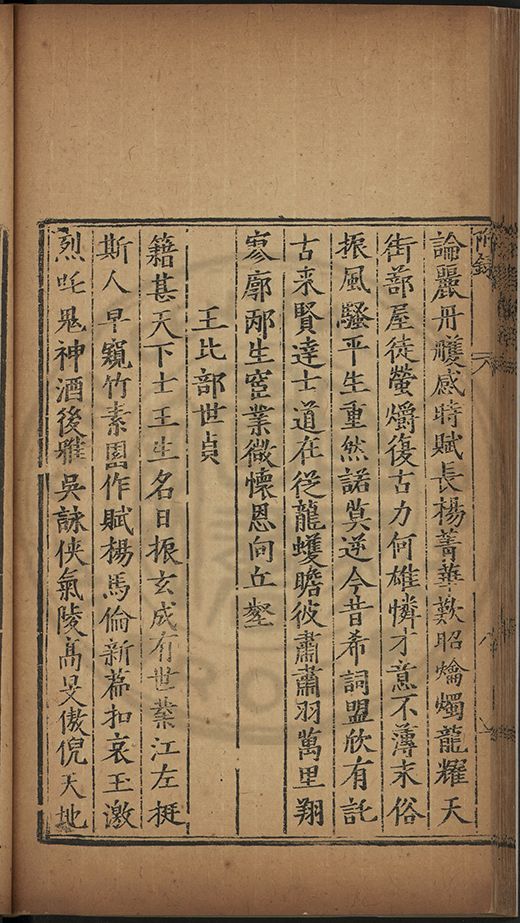 附錄
論麗丹雘感時賦長楊菁華歎昭爚燭龍耀天
街蔀屋徒螢爝復古力何雄憐才意不薄末俗
振風騷平生重然諾莫逆今昔希詞盟欣有託
古来賢達士道在從龍蠖瞻彼肅肅羽萬里翔
寥廓邴生業微懷恩向丘壑
王比部世貞
籍甚天下士王生名日振玄成有世業江左挺
斯人早窺竹素園作賦楊馬倫新篇扣哀玉激
烈吒鬼神酒後雅吳詠俠氣陵高旻傲倪天地